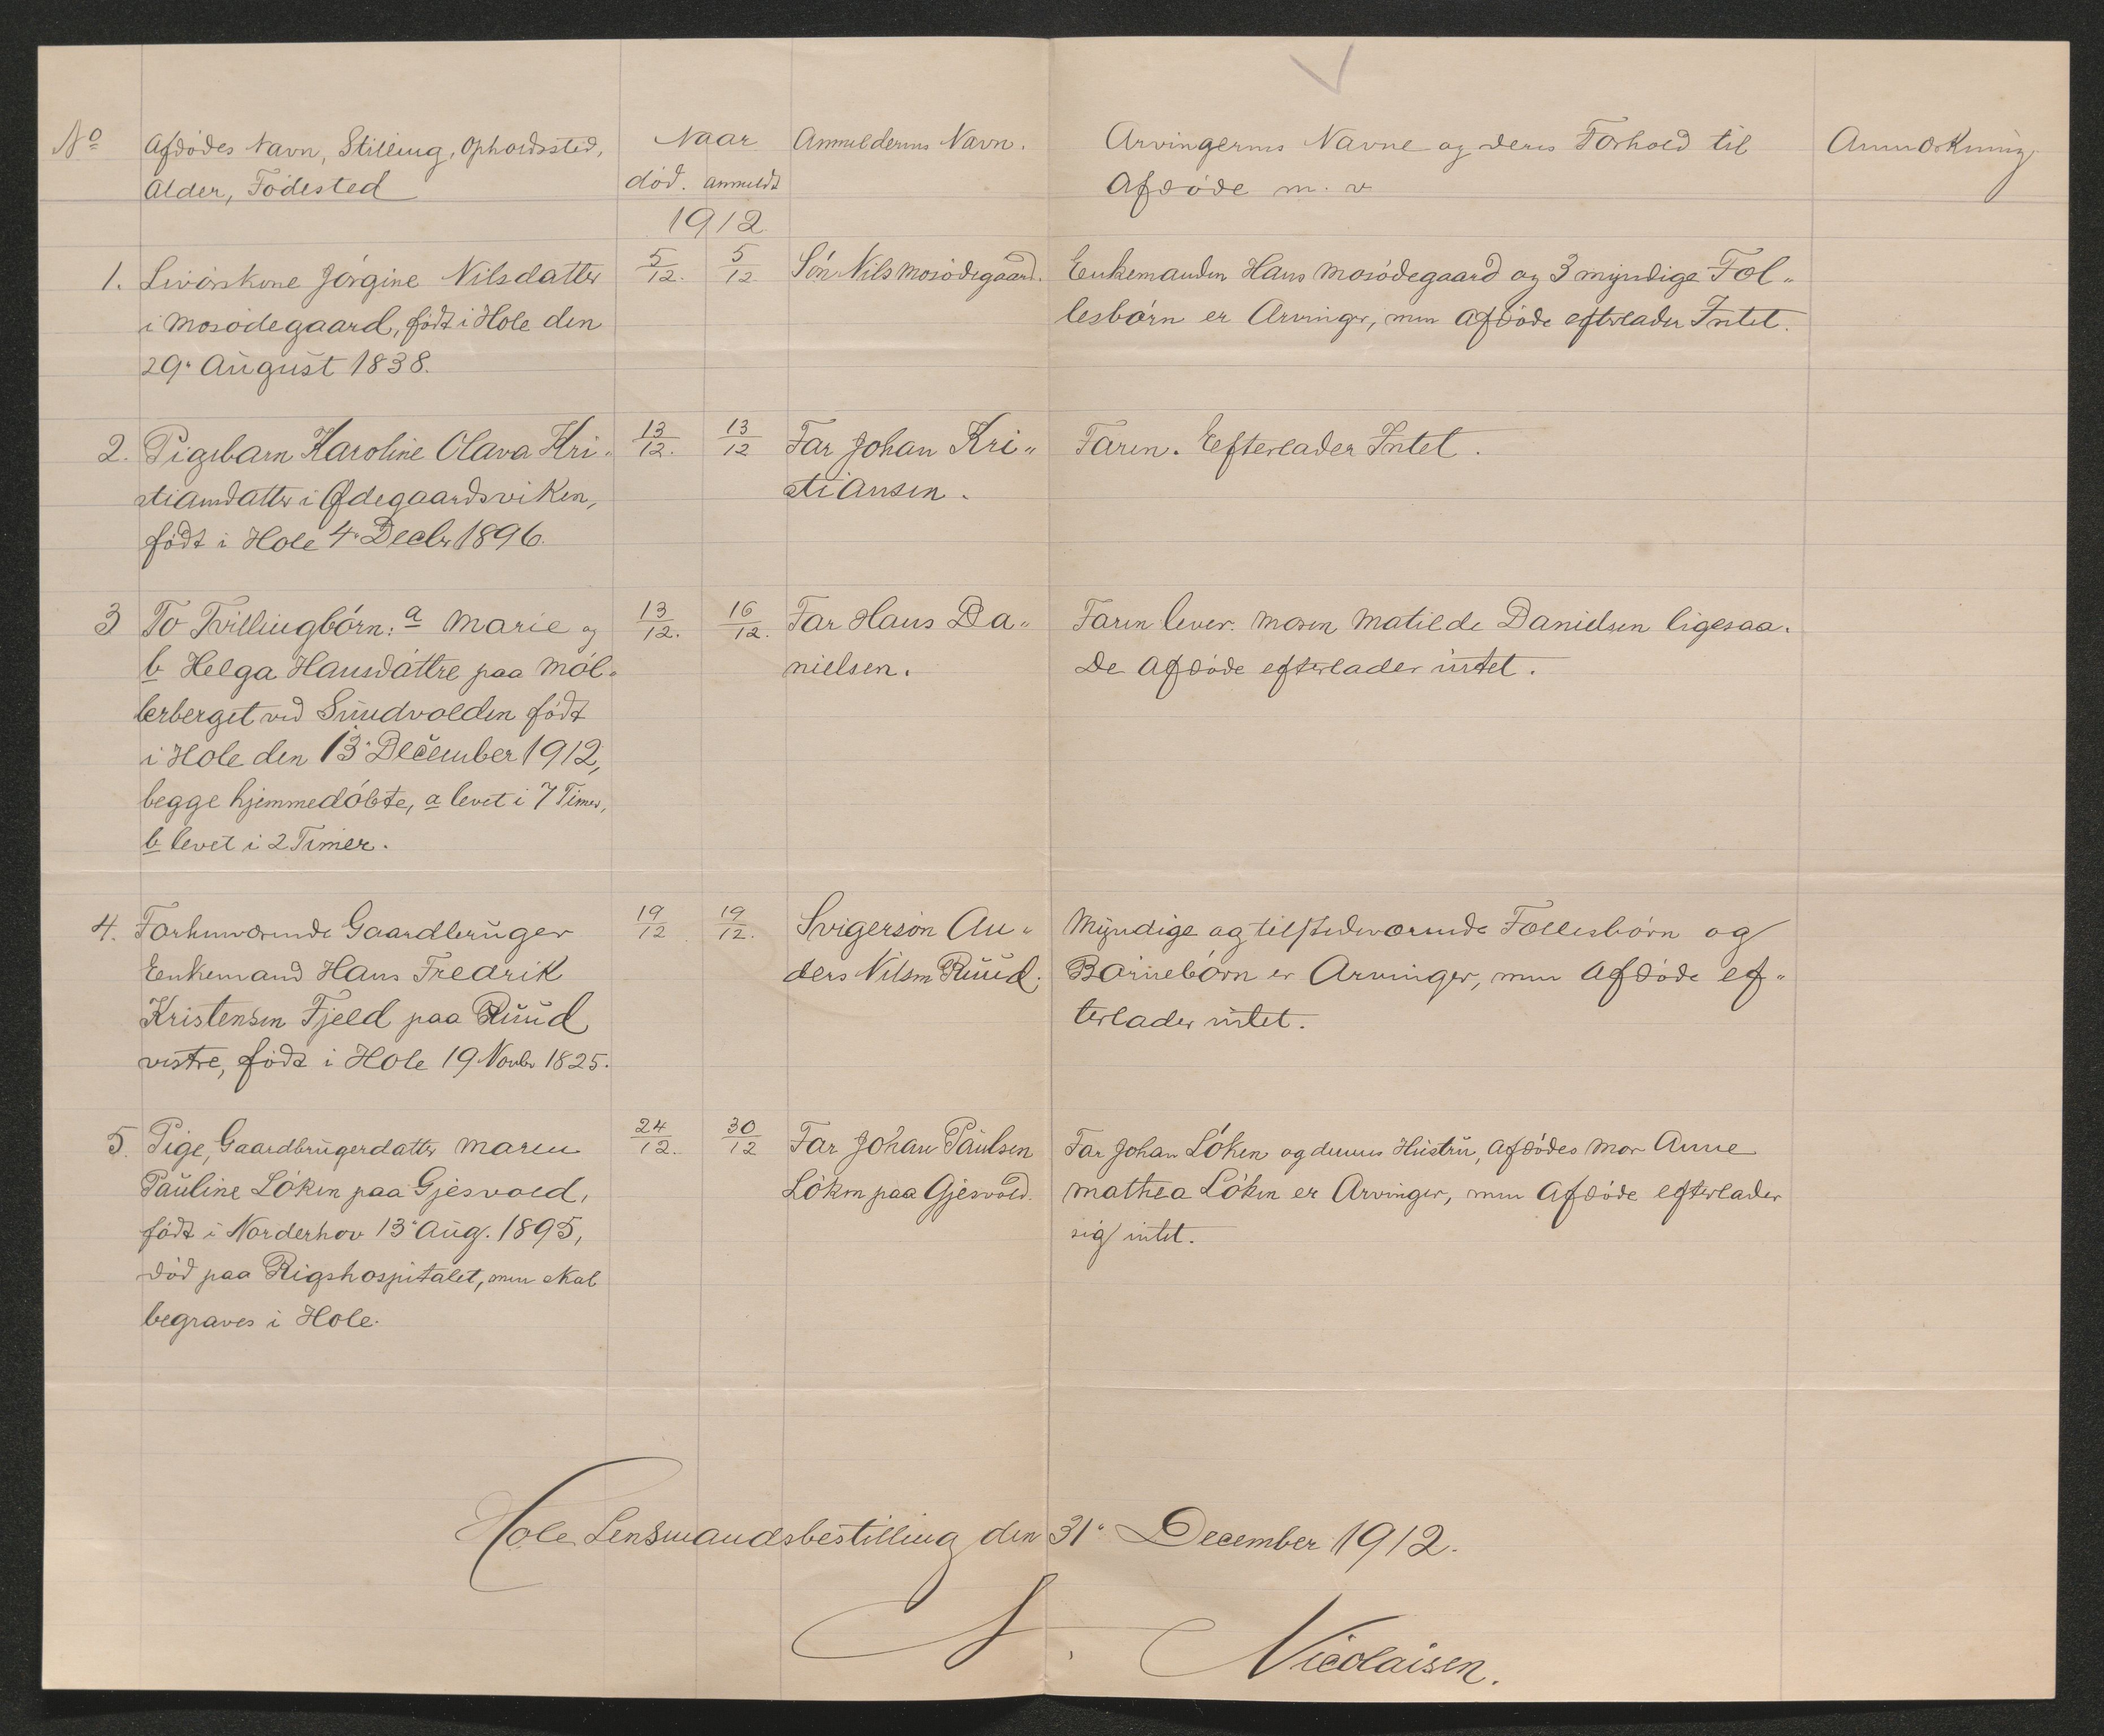 No
Afdødes Navn, Stilling, Opholdssted,
Alder, Fødested
Naar
død. anmeldt
1912
Anmelderens Navn.
Arvingernes Navne og deres Forhold til
Afdøde m. v
Anmærkning.
1. Livørskone Jørgine Nilsdatter
i Mosødegaard, født i Hole den
29. August 1838.
5/12. 5/12
Søn Nils Mosødegaard.
Enkemanden Hans Mosødegaard og 3 myndige Fæl„
lesbørn er Arvinger, men Afdøde efterlader Intet.
2. Pigebarn Karoline Olava Kri„
stiansdatter i Ødegaardsviken,
født i Hole 4. Decbr 1896.
13/12. 13/12
Far Johan Kri„
stiansen.
Faren. Efterlader Intet.
3 To Tvillingbørn: a Marie og
b Helga Hansdøttre paa Møl„
lerberget ved Sundvolden født
i Hole den 13. December 1912,
begge hjemmedøbte, a levet i 7 Timer,
b levet i 2 Timer.
13/12. 16/12.
Far Hans Da„
nielsen.
Faren lever. Moren Matilde Danielsen ligesaa.
De Afdøde efterlader intet.
4. Forhenværende Gaardbruger
Enkemand Hans Fredrik
Kristensen Fjeld paa Ruud
vestre, født i Hole 19 Novbr 1825.
19/12 19/12.
Svigersøn An„
ders Nilsen Ruud.
Myndige og tilstedeværende Fællesbørn og
Børnebørn er Arvinger, men Afdøde ef„
terlader intet.
5. Pige, Gaardbrugerdatter Maren
Pauline Løken paa Gjesvold,
født i Norderhov 13. Aug. 1895,
død paa Rigshospitalet, men skal
begraves i Hole.
24/12. 30/12
Far Johan Paulsen
Løken paa Gjesvold.
Far Johan Løken og dennes Hustru, Afdødes Mor Anne
Mathea Løken er Arvinger, men Afdøde efterlader
sig intet.
Hole Lensmandsbestilling den 31. December 1912.
Nicolaisen.